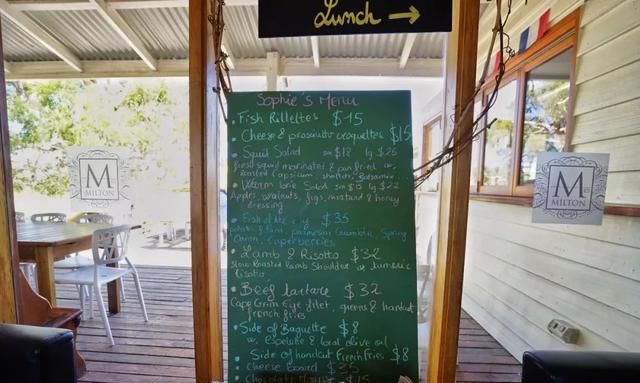 Lunch →
Sophie's Menu
• Fish Rillettes $15
• Cheese & prosciutto croquettes $15
• Squid Salad sm $18 lg $25
fresh squid marinated & pan fried w.
Roasted Capsicum, shallots, Balsamic
• Warm Brie Salad sm $15 lg $22
Apples, walnuts, figs, mustard & honey
dressing
• Fish of the day $35
parmesan Spring
capberberries
• Lamb & Risotto $32
Slow Roasted Lamb Shoulder w tumeric
risotto
• Beef tartare $32
Cape Grim Eye filet, greens & handcut
french fries
• Side of Baguette $8
w. Espelette & local olive oil
Side of handcut French Fries $8
• Cheese Board $25
$15
M
MILTON
M
MILTON